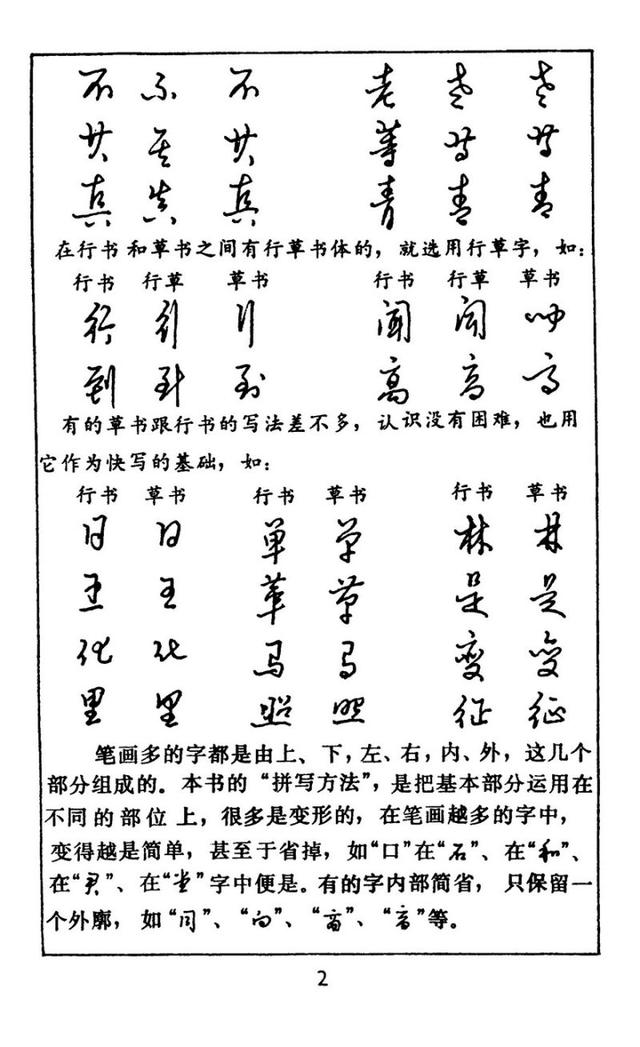 不 不 不 老 老 老
共 共 共 等 等 等
真 真 真 青 青 青
在行书和草书之间有行草书体的，就选用行草字，如：
行书 行草 草书 行书 行草 草书
行 行 行 闻 闻 闻
到 到 到 高 高 高
有的草书跟行书的写法差不多，认识没有困难，也用
它作为快写的基础，如：
行书 草书 行书 草书 行书 草书
日 日 单 单 林 林
王 王 革 革 是 是
化 化 马 马 变 变
里 里 照 照 征 征
笔画多的字都是由上、下，左、右，内、外，这几个
部分组成的。本书的“拼写方法”，是把基本部分运用在
不同的部位上，很多是变形的，在笔画越多的字中，
变得越是简单，甚至于省掉，如“口”在“石”、在“和”、
在“君”、在“堂”字中便是。有的字内部简省，只保留一
个外廓，如“问”、“向”、“高”、“音”等。
2